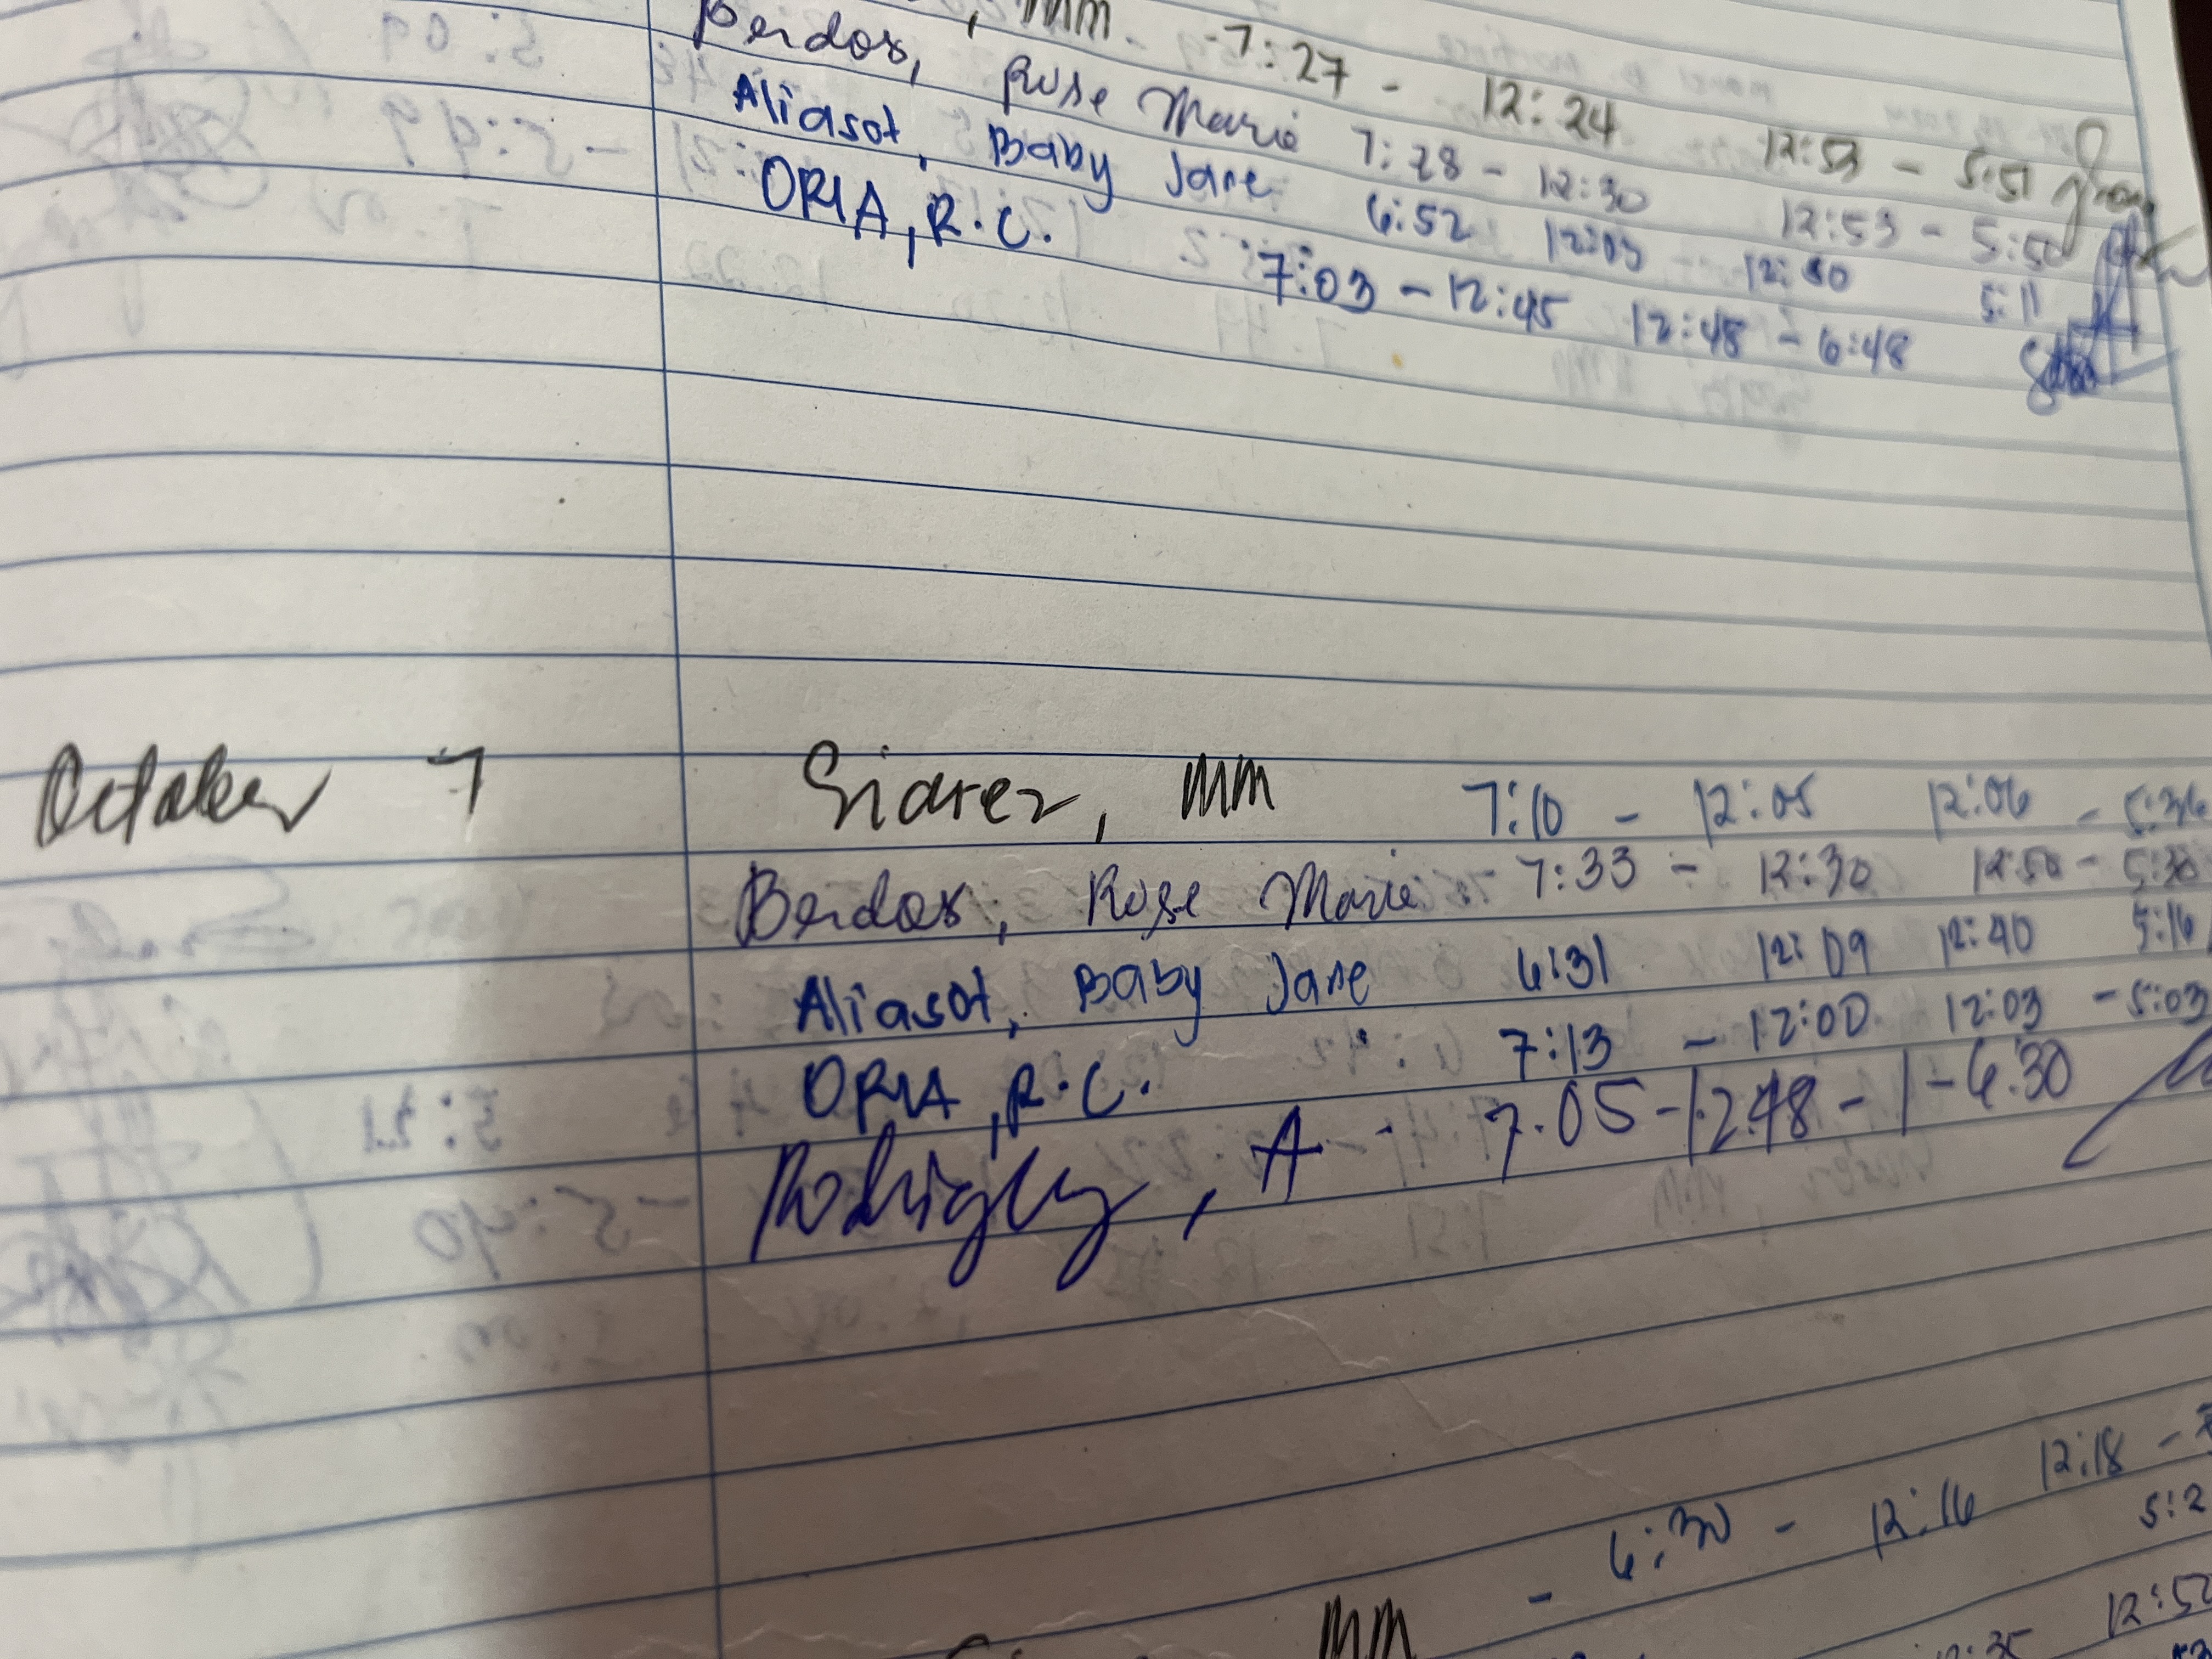 , MM - 7:27 - 12:24 12:53 - 5:51
Berdos, Rose Marie 7:28 - 12:30 12:53 - 5:50
Aliasot, Baby Jane 6:52 12:03 12:30 5:11
ORIA, R.C. 7:03 - 12:45 12:48 - 6:48
October 7 Siarez, MM 7:10 - 12:05 12:06 - 5:36
Berdos, Rose Marie - 7:33 - 12:30 12:50 - 5:30
Aliasot, Baby Jane 6:31 12:09 12:40 5:16
ORIA, R.C. 7:13 - 12:00 12:03 - 5:03
A - 7.05 - 12:48 - 1 - 6.30
MM - 6:30 - 12:16 12:18 -
5:2
12:35 12:52